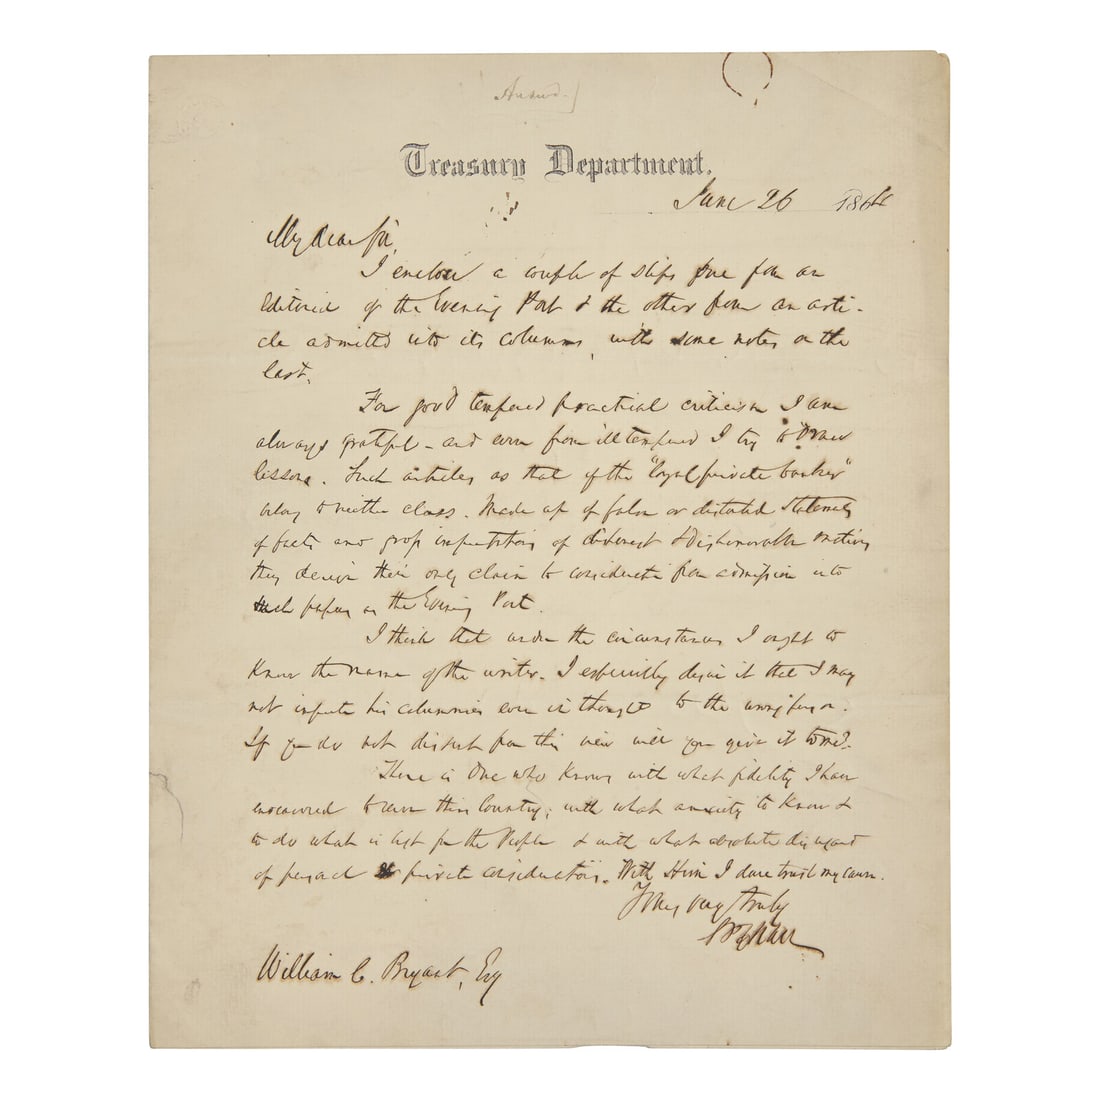 Answd.
Treasury Department.
June 26 1864
My dear Sir,
I enclose a couple of slips one from an
editorial of the Evening Post & the other from an arti-
cle admitted into its columns, with some notes on the
last.
For good tempered practical criticism I am
always grateful - and even from ill tempered I try to draw
lessons. Such articles as that of the "loyal private banker"
belong to neither class. Made up of false or distorted statements
of facts and gross imputations of dishonest & dishonorable motives
they derive their only claim to consideration from admission into
such papers as the Evening Post.
I think that under the circumstances I ought to
know the name of the writer. I especially desire it that I may
not impute his calumnies even in thought to the wrong person.
If you do not dissent from this view will you give it to me?
There is One who knows with what fidelity I have
endeavored to serve this Country; with what anxiety to know &
to do what is best for the People & with what absolute disregard
of personal or private considerations. With Him I dare trust my cause.
Yours very truly
SPChase
William C. Bryant, Esq